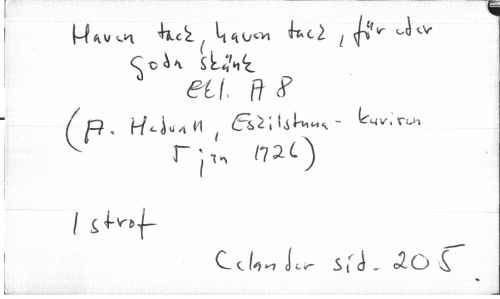 Haven tack, haven tack, för eder
goda skänk
Etl. A 8
(A. Hedvall, Eskilstuna-kuriren
5 jan 1926)
1 strof
Celander sid. 205